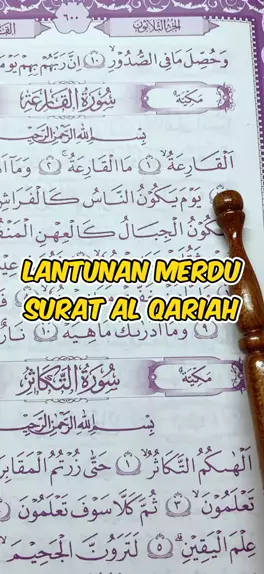 ٦٠٠
الجزء الثلاثون
وَحُصِّلَ مَا فِى الصُّدُوْرِۙ ١٠ اِنَّ رَبَّهُمْ بِهِمْ
سُوْرَةُ الْقَارِعَةِ مَكِّيَّة
بِسْمِ اللهِ الرَّحْمٰنِ الرَّحِيْمِ
اَلْقَارِعَةُۙ ١ مَا الْقَارِعَةُۚ ٢ وَمَآ
يَوْمَ يَكُوْنُ النَّاسُ كَالْفَرَاشِ
الْجِبَالُ كَالْعِهْنِ
LANTUNAN MERDU
SURAT AL QARIAH
٩ وَمَآ اَدْرٰىكَ مَاهِيَهْۗ ١٠
سُوْرَةُ التَّكَاثُرِ مَكِّيَّة
بِسْمِ اللهِ الرَّحْمٰنِ الرَّحِيْمِ
اَلْهٰىكُمُ التَّكَاثُرُۙ ١ حَتّٰى زُرْتُمُ الْمَقَابِرَ
تَعْلَمُوْنَۙ ٣ ثُمَّ كَلَّا سَوْفَ تَعْلَمُوْنَ
عِلْمَ الْيَقِيْنِۗ ٥ لَتَرَوُنَّ الْجَحِيْمَۙ